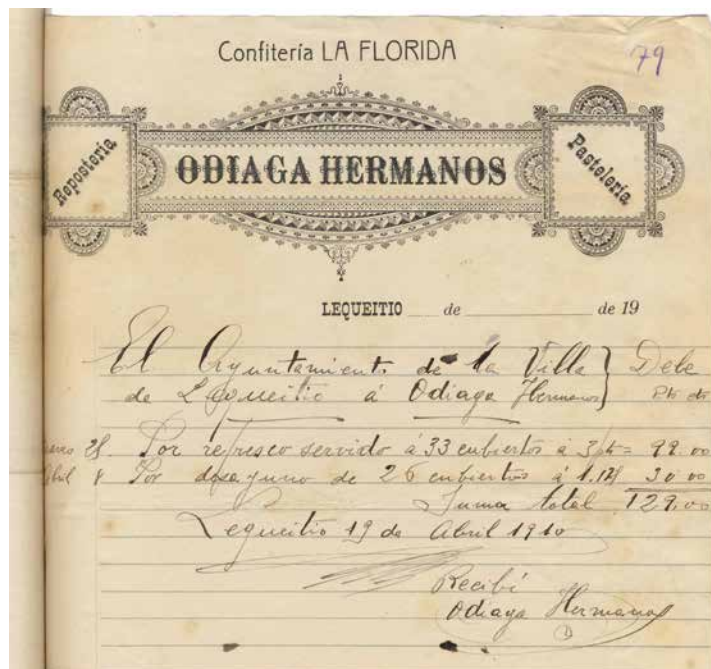 Confitería LA FLORIDA
79
Repostería
ODIAGA HERMANOS
Pastelería
LEQUEITIO ___ de __________ de 19
El Ayuntamiento de la Villa } Debe
de Lequeitio á Odiaga Hermanos } Pts cts
28 Por refresco servido á 33 cubiertos á 3 pts = 99.00
Abril 8 Por desayuno de 26 cubiertos á 30 00
Suma total 129,00
Lequeitio 19 de Abril 1910
Recibí
Odiaga Hermanos